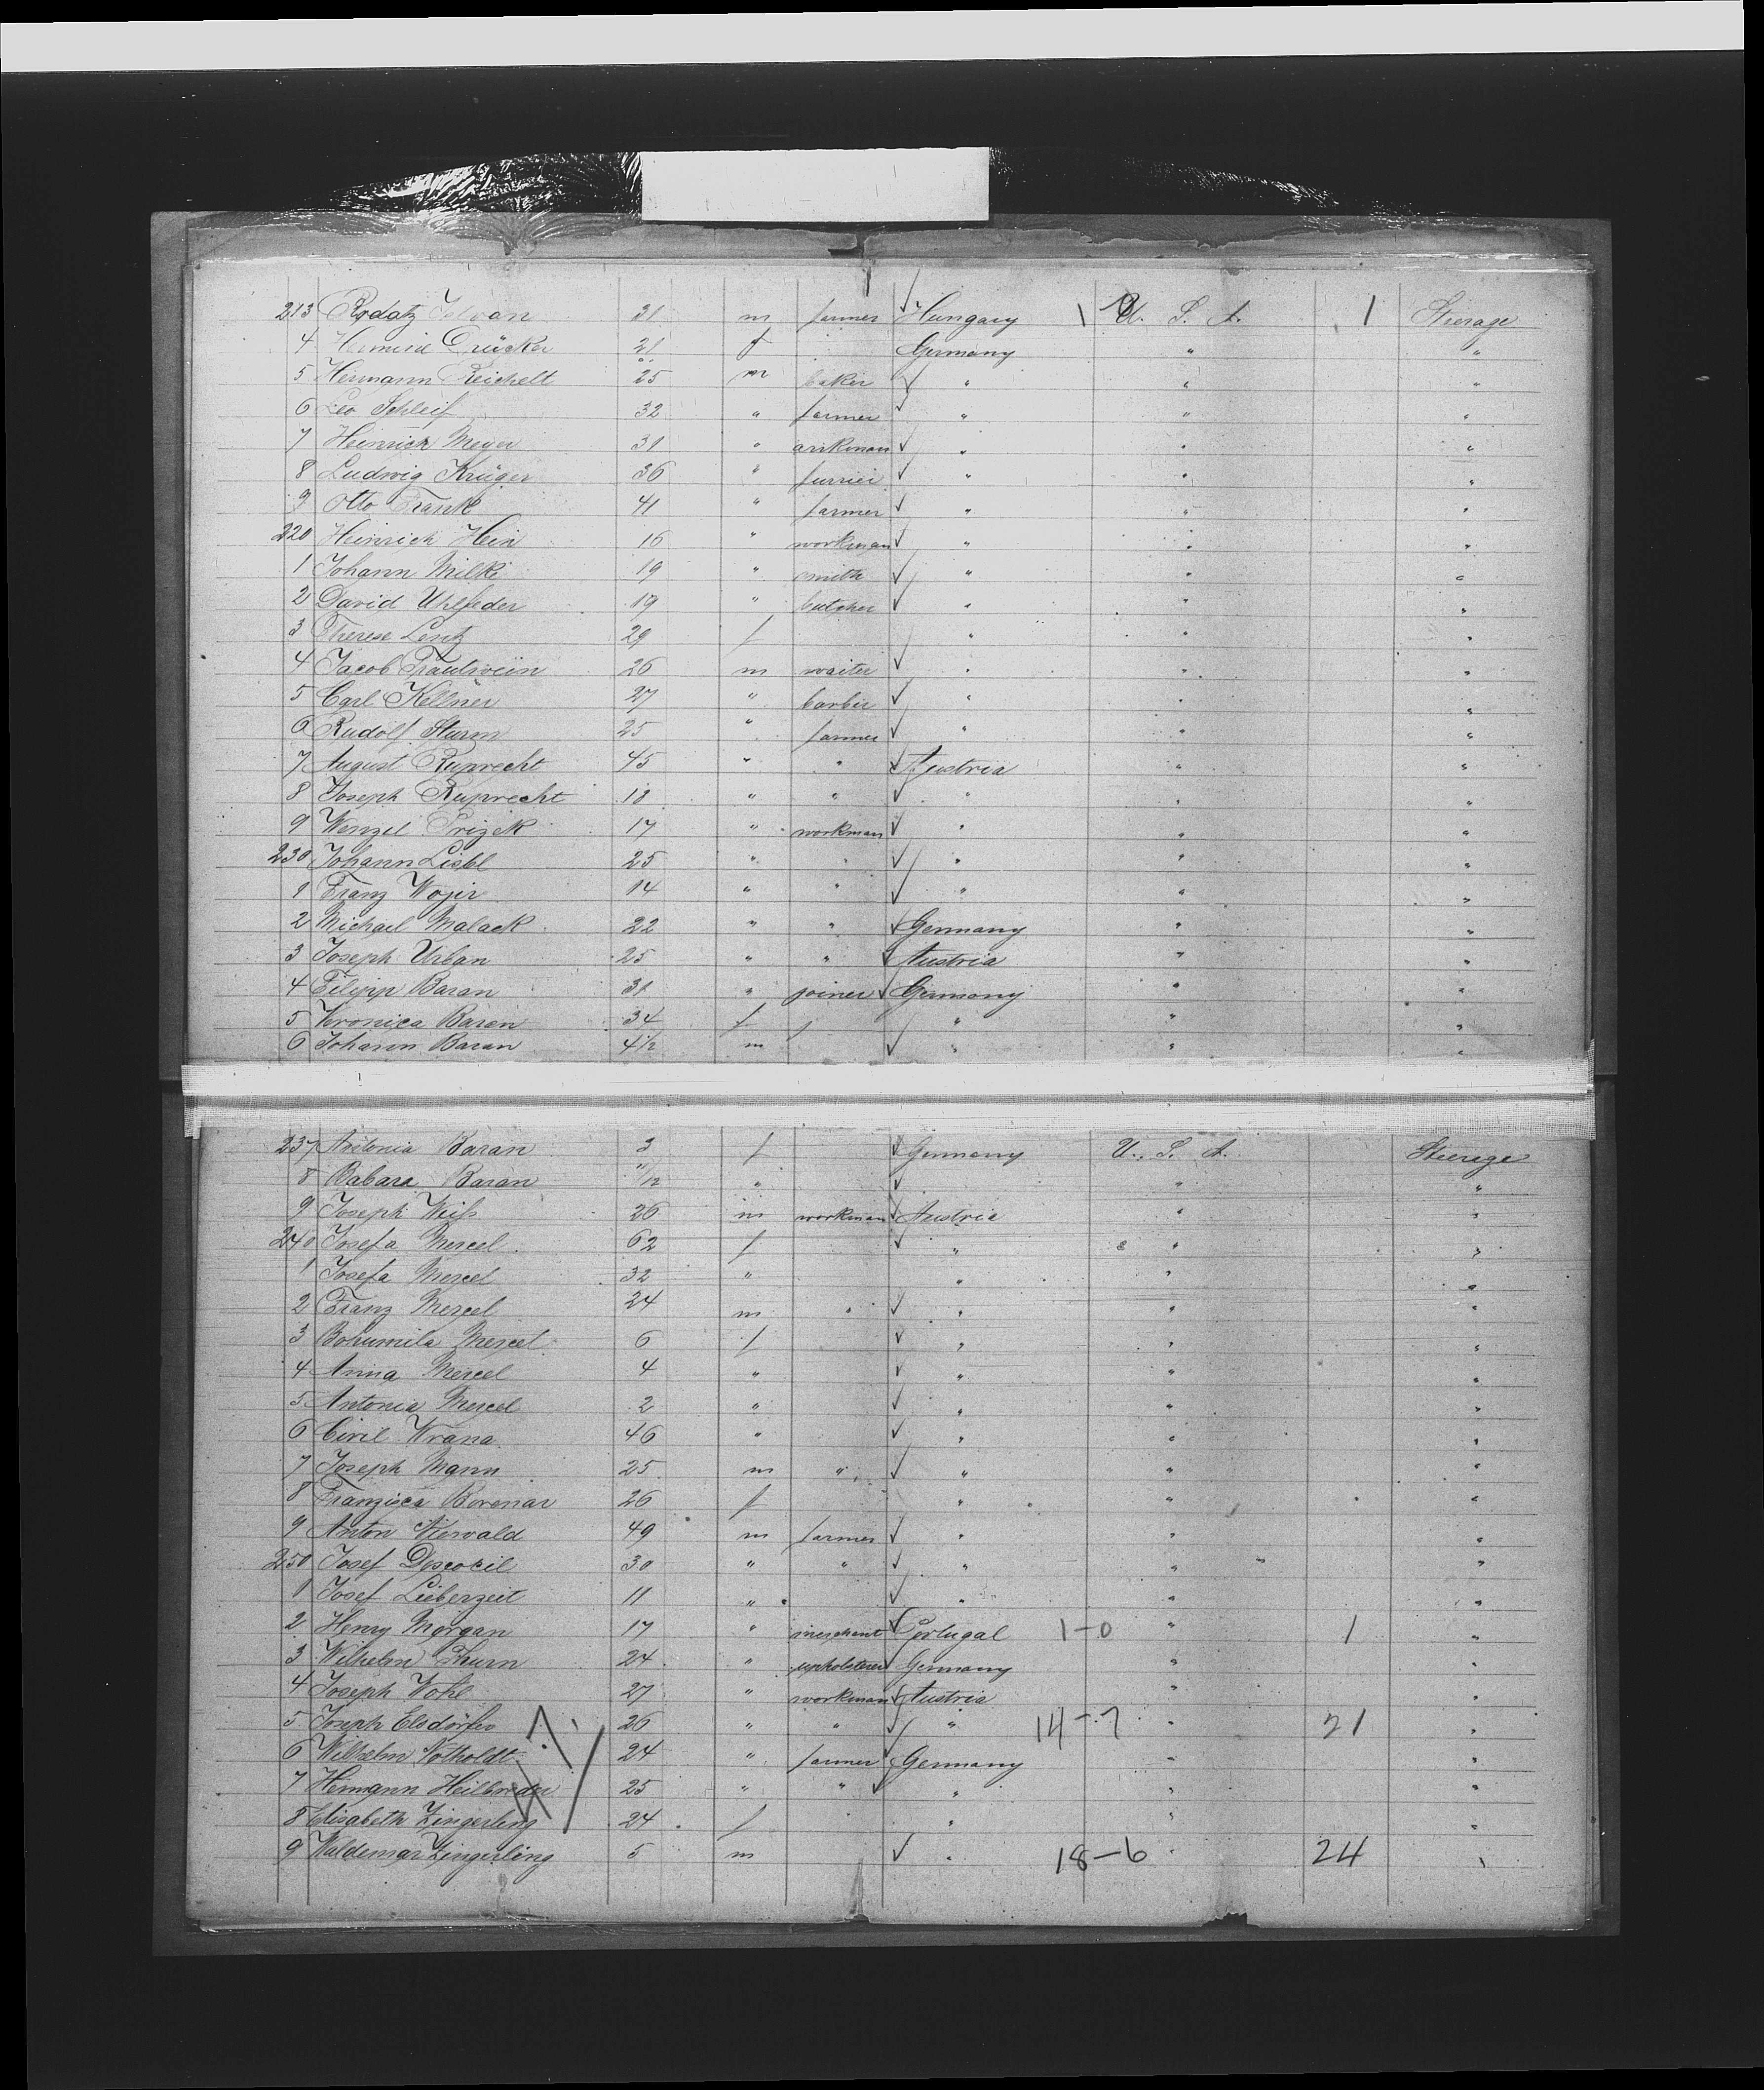 213 Rydatz Istvan 31 m farmer Hungary \ U. S. A. 1 Steerage
4 Drücker 21 f Germany " "
5 Hermann Reichelt 25 m baker " " "
6 Leo Schleif 32 " farmer " " "
7 Heinrich Meyer 31 " " " "
8 Ludwig Krüger 36 " furrier " " "
9 Otto Frank 41 " farmer " " "
220 Heinrich Hein 16 " workman " " "
1 Johann Milke 19 " smith " " "
2 David Uhlfeder 19 " butcher " " "
3 Therese Lentz 29 f " " "
4 Jacob Trautwein 26 m waiter " " "
5 Carl Kellner 27 " barbier " " "
6 Rudolf Sturm 25 " farmer " " "
7 August Ruprecht 45 " " Austria " "
8 Joseph Ruprecht 18 " " " " "
9 Wenzel Prizek 17 " workman " " "
230 Johann Liebl 25 " " " " "
1 Franz Wojir 14 " " " " "
2 Michael Malack 22 " " Germany " "
3 Joseph Urban 25 " " Austria " "
4 Filipp Baran 31 " joiner Germany " "
5 Veronica Baran 34 f " " "
6 Johann Baran 4 1/2 m " " "
237 Antonia Baran 3 f Germany U. S. A. Steerage
8 Babara Baran 11/12 " " "
9 Joseph Weiss 26 m workman Austria " "
240 Josefa Mercel 62 f " " "
1 Josefa Mercel 32 " " " "
2 Franz Mercel 24 m " " " "
3 Bohumila Mercel 6 f " " "
4 Anna Mercel 4 " " " "
5 Antonia Mercel 2 " " " "
6 Ciril Wrana 46 " " " "
7 Joseph Mann 25 m " " " "
8 Franzisca Borenar 26 f " " "
9 Anton Vierwald 49 m farmer " " "
250 Josef Doscocil 30 " " " " "
1 Josef Lieberzeit 11 " " " "
2 Henry Morgan 17 " merchant Portugal 1-0 " 1 "
3 Wilhelm Thurn 24 " upholsterer Germany " "
4 Joseph Wohl 27 " workman Austria " "
5 Joseph Elsdörfer 26 " " " 14-7 " 21 "
6 Wilhelm Notholdt 24 " farmer Germany " "
7 Hermann Heilbreder 25 " " " " "
8 Elisabeth Zingerling 24 f " " "
9 Waldemar Zingerling 5 m " 18-6 " 24 "